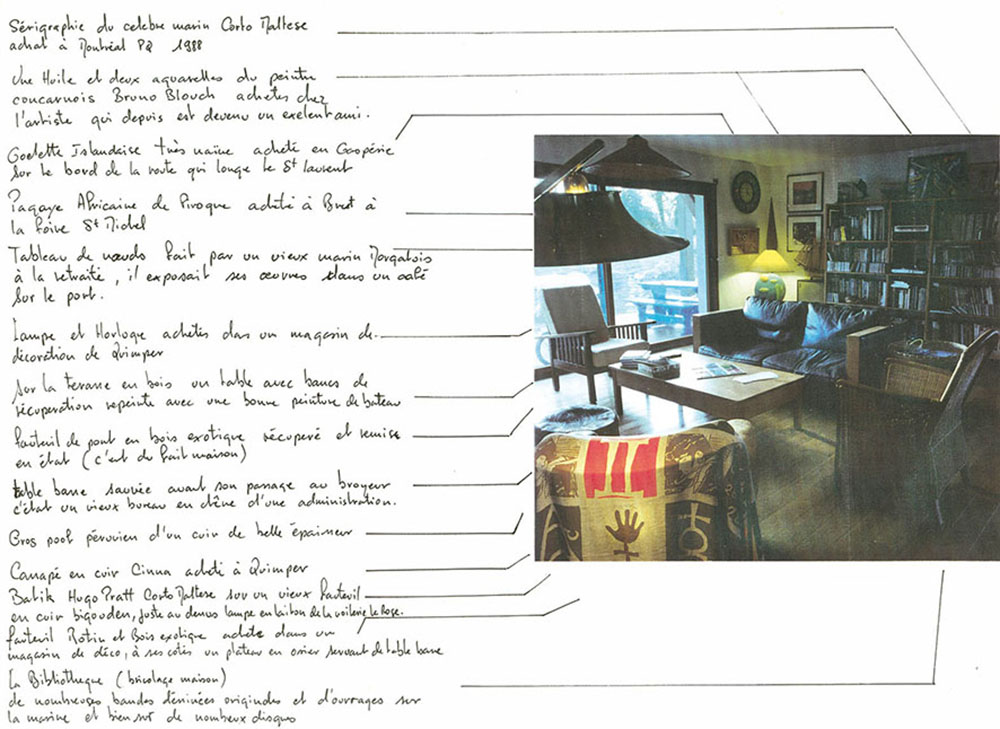 Sérigraphie du celebre marin Corto Maltese
achat à Montréal PQ 1988
Une Huile et deux aquarelles du peintre
concarnois Bruno Blouch achetés chez
l'artiste qui depuis est devenu un exelent ami.
Goelette Islandaise très naïve acheté en Gaspérie
sur le bord de la route qui longe le St Laurent
Pagaye Africaine de Pirogue acheté à Brest à
la foire St Michel
Tableau de nœuds fait par un vieux marin Morgatois
à la retraite, il exposait ses œuvres dans un café
sur le port.
Lampe et Horloge achetés dans un magasin de
décoration de Quimper
Sur la terrasse en bois un table avec bancs de
récuperation repeinte avec une bonne peinture de bateau
fauteuil de pont en bois exotique récuperé et remise
en état (c'est du fait maison)
table basse sauvée avant son passage au broyeur
c'était un vieux bureau en chêne d'une administration.
Gros poof péruvien d'un cuir de belle épaisseur
Canapé en cuir Cinna acheté à Quimper
Batik Hugo Pratt Corto Maltese sur un vieux fauteuil
en cuir bigouden, juste au dessus lampe en laiton de la voilerie le Rose.
fauteuil Rotin et Bois exotique acheté dans un
magasin de déco, à ses cotés un plateau en osier servant de table basse
La Bibliotheque (bricolage maison)
de nombreuses bandes déssinées originales et d'ouvrages sur
la marine et bien sur de nombeux disques